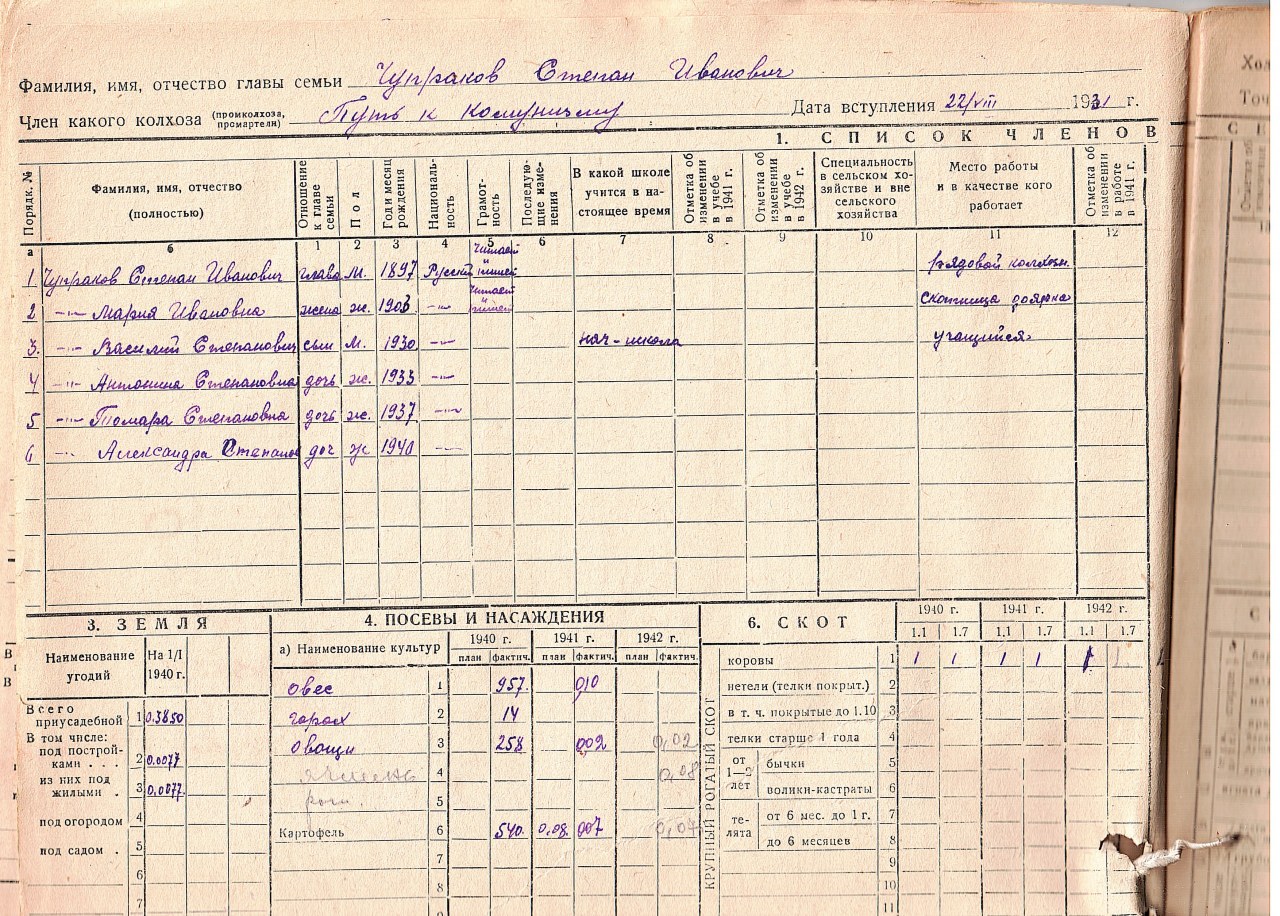 Фамилия, имя, отчество главы семьи Чупраков Степан Иванович
Член какого колхоза (промколхоза, промартели) Путь к Комунизму Дата вступления 22/VIII 1931 г.
1. СПИСОК ЧЛЕНОВ
Порядк. № Фамилия, имя, отчество (полностью) Отношение к главе семьи Пол Год и месяц рождения Националь-ность Грамот-ность Последую-щие изме-нения В какой школе учится в на-стоящее время Отметка об изменении в учебе в 1941 г. Отметка об изменении в учебе в 1942 г. Специальность в сельском хо-зяйстве и вне сельского хозяйства Место работы и в качестве кого работает Отметка об изменении в работе в 1941 г.
а б 1 2 3 4 5 6 7 8 9 10 11 12
1 Чупраков Степан Иванович глава М. 1897 Русский Читает и пишет рядовой колхозн.
2 -"- Мария Ивановна жена ж. 1903 -"- Читает и пишет скотница доярка
3. -"- Василий Степанович сын М. 1930 -"- нач-школа учащийся
4 -"- Антонина Степановна дочь ж. 1933 -"-
5 -"- Томара Степановна дочь ж. 1937 -"-
6 -"- Александра Степанов доч ж 1940 -"-
3. ЗЕМЛЯ
Наименование угодий На 1/I 1940 г.
Всего приусадебной 1 0,3850
В том числе:
под построй-ками . . . 2 0,0077
из них под жилыми . 3 0,0077.
под огородом 4
под садом . 5
6
7
4. ПОСЕВЫ И НАСАЖДЕНИЯ
а) Наименование культур 1940 г. 1941 г. 1942 г.
план фактич. план фактич. план фактич.
овес 1 957. 010
горох 2 14
овощи 3 258 002 0,02
ячмень 4 0,08
5
Картофель 6 540. 0,08. 007 0,07
7
8
6. СКОТ
1940 г. 1941 г. 1942 г.
1.1 1.7 1.1 1.7 1.1 1.7
КРУПНЫЙ РОГАТЫЙ СКОТ
коровы 1 1 1 1 1 1 1
нетели (телки покрыт.) 2
в т. ч. покрытые до 1.10 3
телки старше 1 года 4
от 1—2 лет бычки 5
волики-кастраты 6
те-лята от 6 мес. до 1 г. 7
до 6 месяцев 8
9
10
11
В
В
Хол
Точ